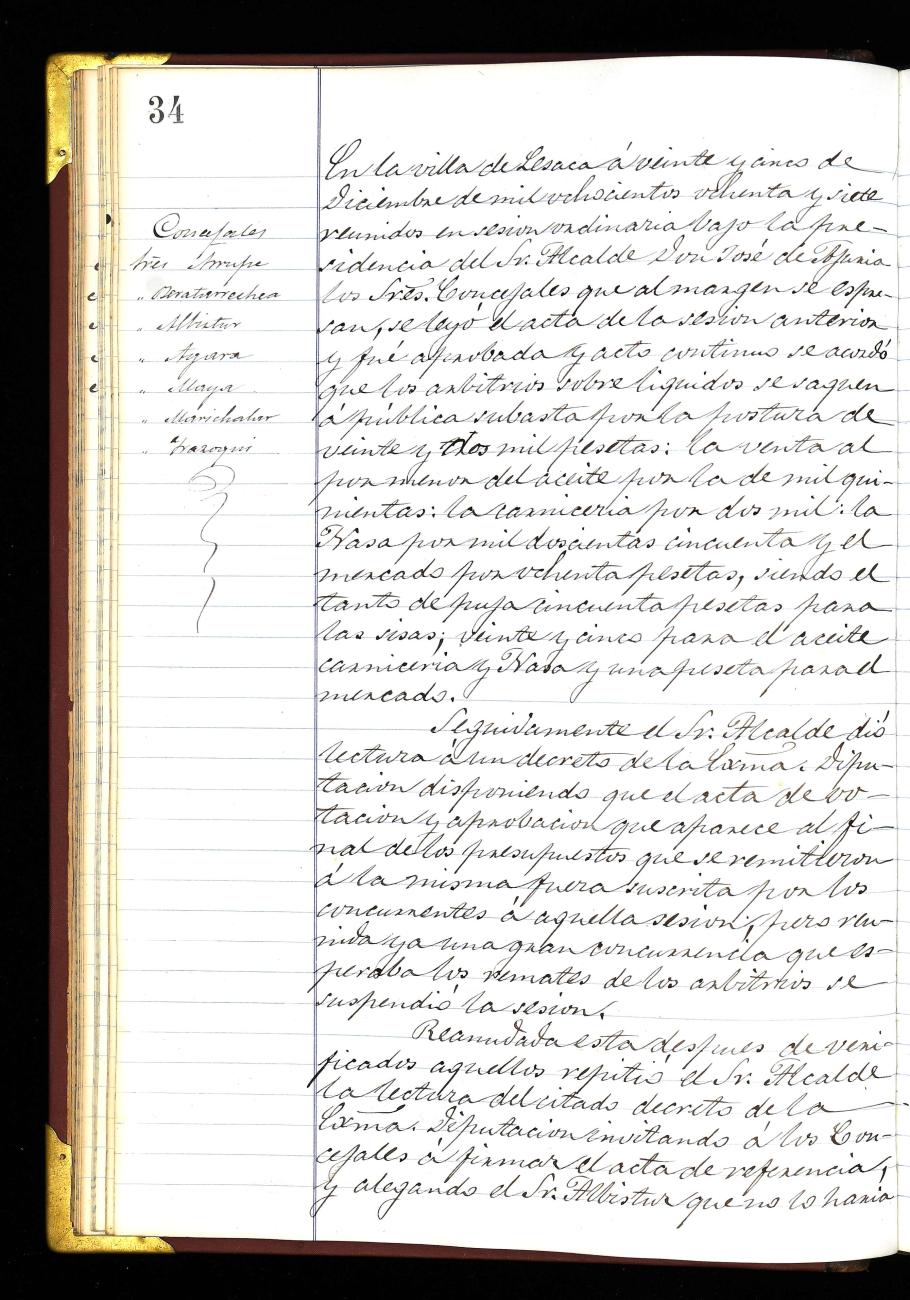 34
Concejales
Sres Arrupe
" Beraturrechea
" Albistur
" Ayarra
" Maya
" Marichalar
" Irazoqui
En la villa de Lesaca á veinte y cinco de
Diciembre de mil ochocientos ochenta y siete
reunidos en sesion ordinaria bajo la pre-
sidencia del Sr. Alcalde Don José de
los Sres. Concejales que al margen se espre-
san, se leyó el acta de la sesion anterior
y fué aprobada y acto continuo se acordó
que los arbitrios sobre liquidos se saquen
á pública subasta por la postura de
veinte y dos mil pesetas: la venta al
por menor del aceite por la de mil qui-
nientas: la carniceria por dos mil: la
Nasa por mil doscientas cincuenta y el
mercado por ochenta pesetas, siendo el
tanto de puja cincuenta pesetas para
las sisas; veinte y cinco para el aceite
carniceria y Nasa y una peseta para el
mercado.
Seguidamente el Sr. Alcalde dió
lectura á un decreto de la Exma. Dipu-
tacion disponiendo que el acta de vo-
tacion y aprobacion que aparece al fi-
nal de los presupuestos que se remitieron
á la misma fuera suscrita por los
concurrentes á aquella sesion; pero reu-
nida ya una gran concurrencia que es-
peraba los remates de los arbitrios se
suspendió la sesion.
Reanudada esta despues de veri-
ficados aquellos repitió el Sr. Alcalde
la lectura del citado decreto de la
Exma. Diputacion invitando á los Con-
cejales á firmar el acta de referencia,
y alegando el Sr. Albistur que no lo haria